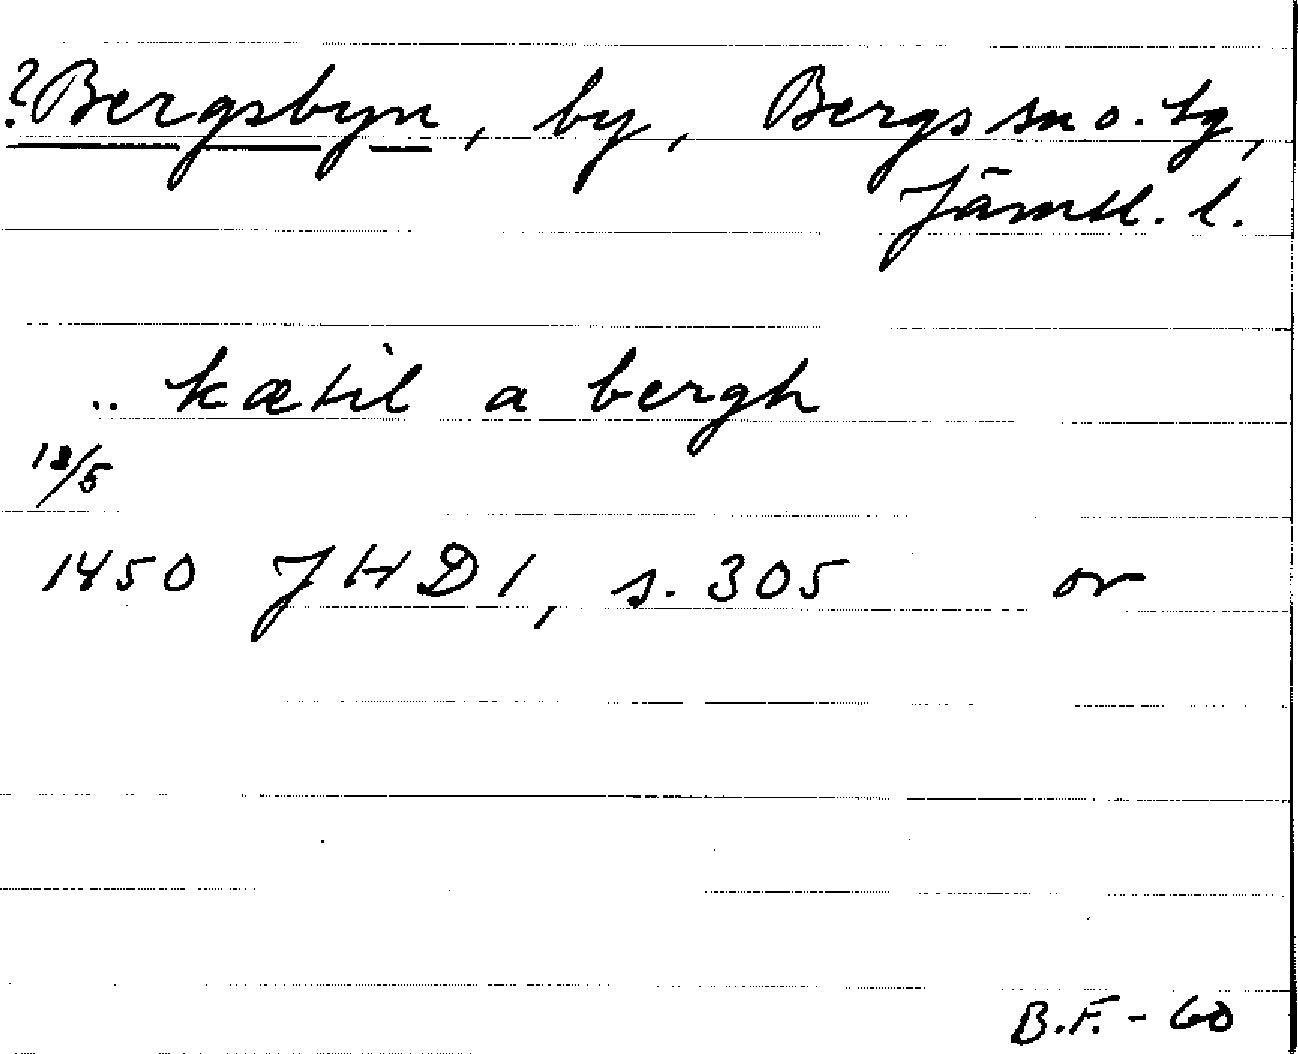 ?Bergsbyn, by, Bergs sn o. tg,
Jämtl. l.
.. kætil a bergh
12/5
1450 JHD 1, s. 305 or
B.F. - 60